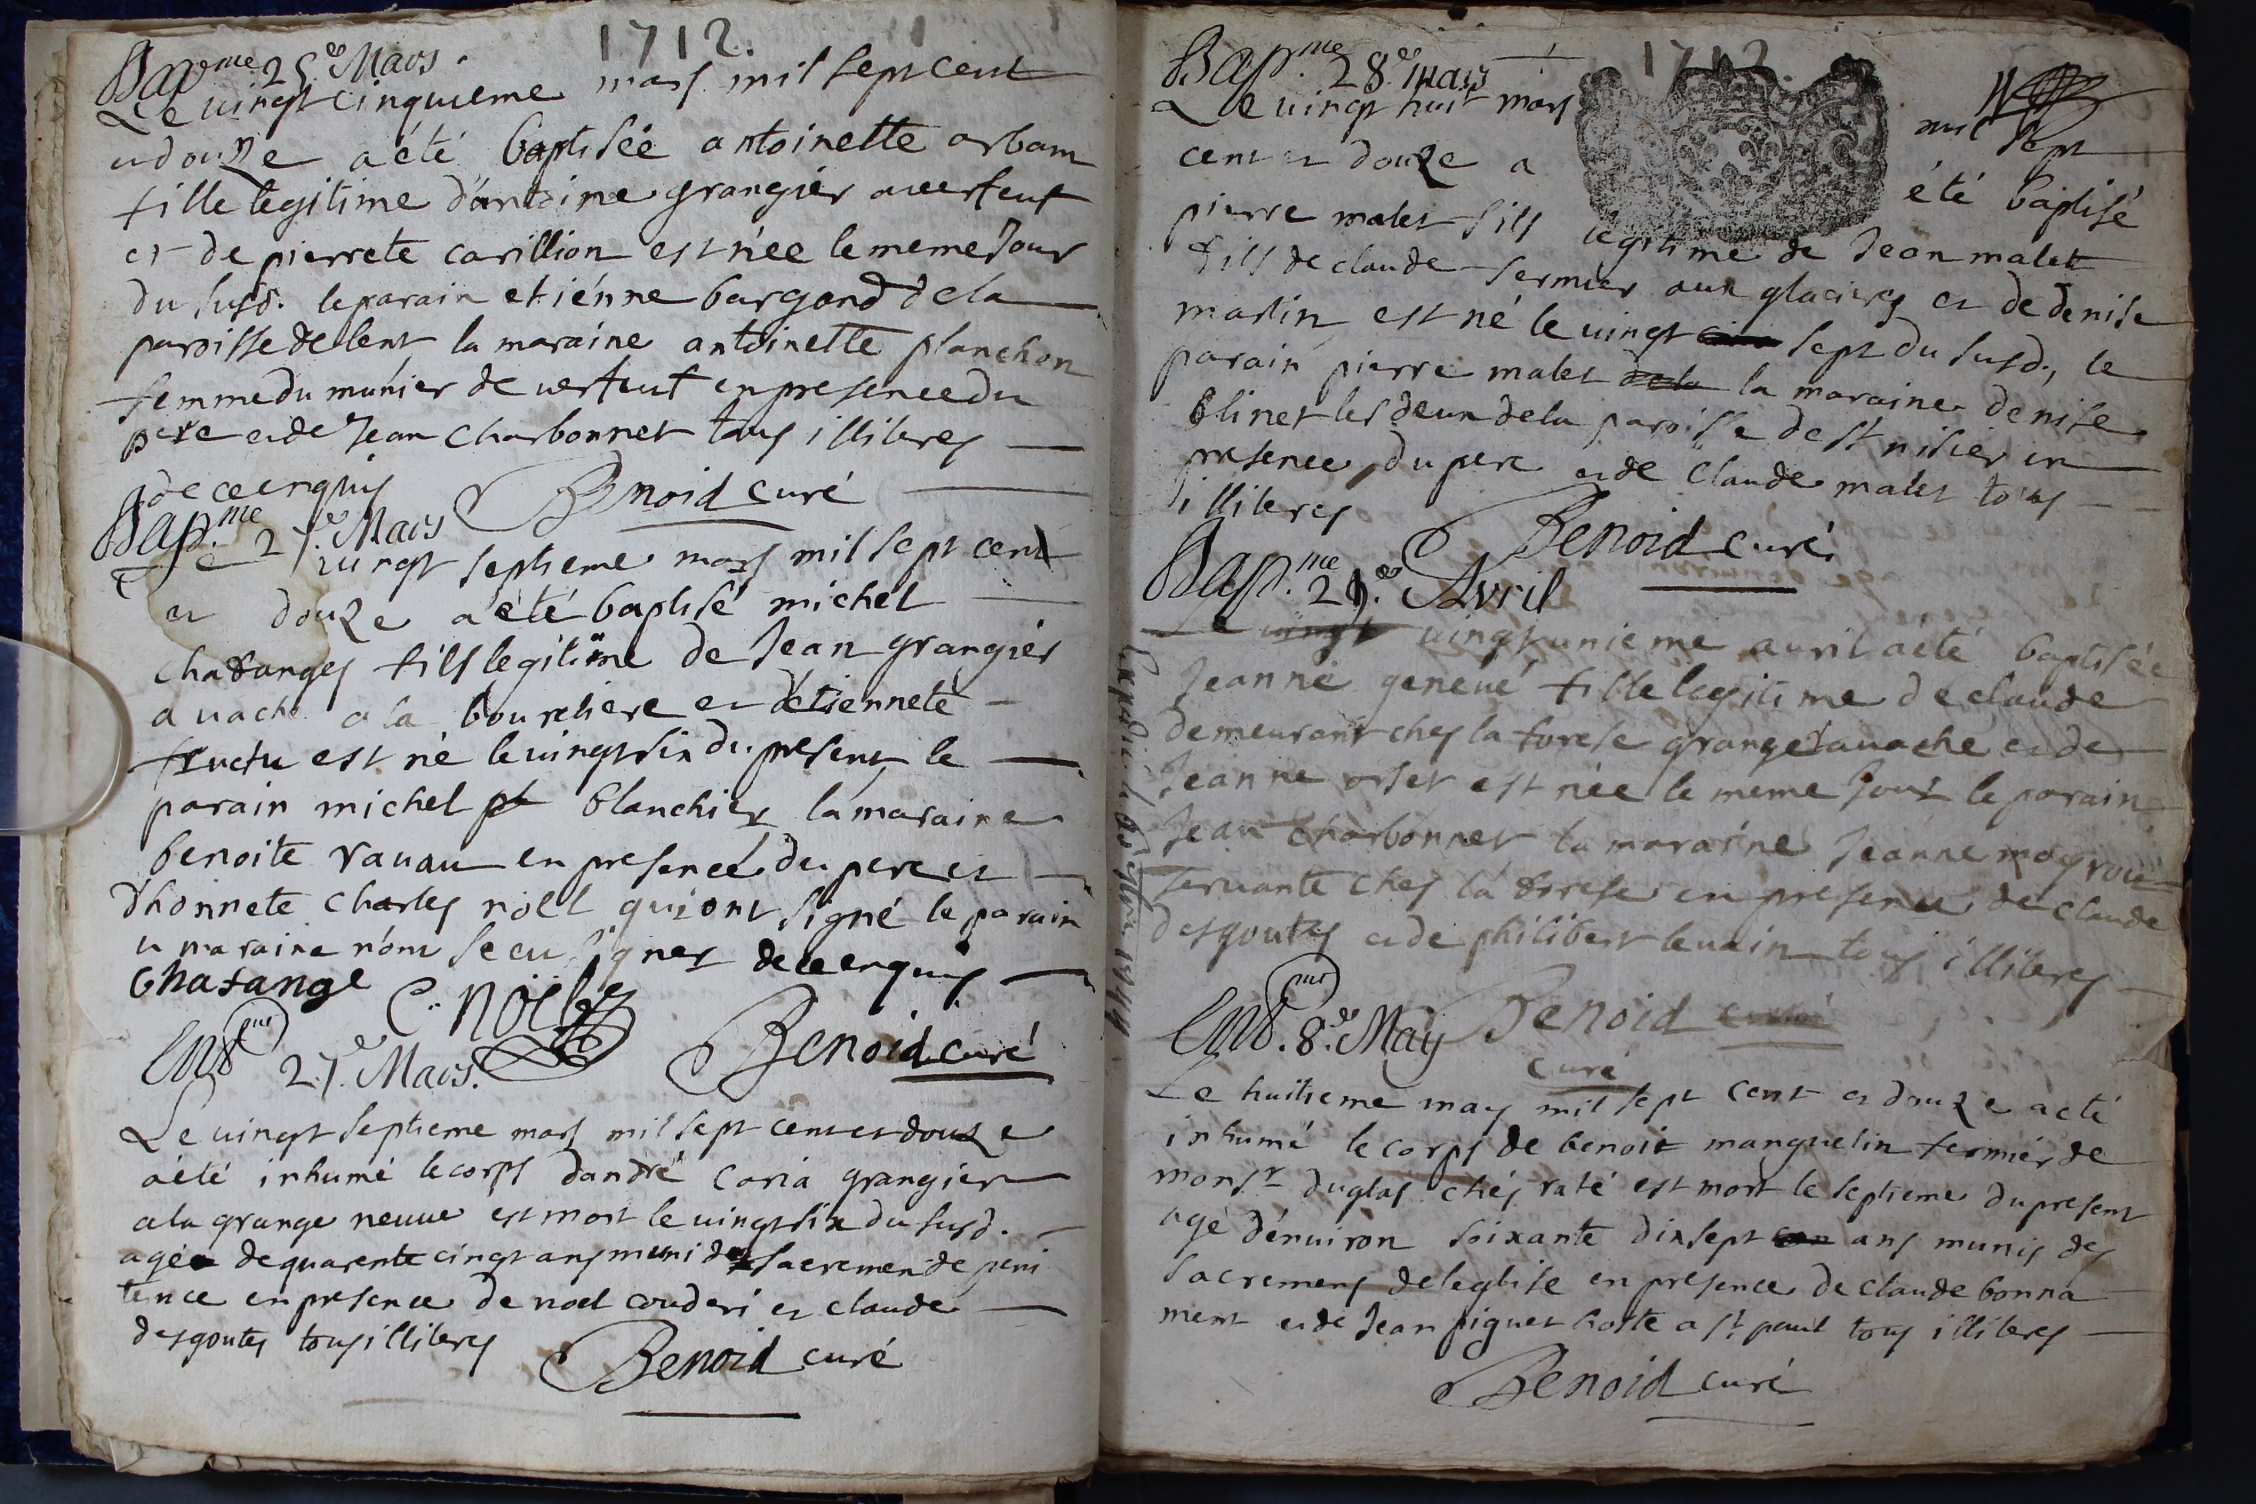 1712.
Bap.me 25.e Mars.
Le vingt cinquieme mars mil sept cent
et douze a été baptisée antoinette arbam
fille legitime d'antoine grangier a verfeut
et de pierrete carillion est née le meme Jour
du susd. le parain etiénne bargond de la
paroisse de lent la maraine antoinette planchon
femme du munier de verfeut en presence du
pere et de Jean Charbonnet tous illiteres
de ce enquis
Benoid curé
Bap.me 27.e Mars
Le vingt septieme mars mil sept cent
et douze a été baptisé michel
chasanges fils legitime de Jean grangier
a vache a la bourchere et d'étiennete
fructu est né le vingt six du present le
parain michel blanchier la maraine
benoite ravau en presence du pere et
d'honnete Charles nöel qui ont signé le parain
et maraine n'ont sceu signer de ce enquis
Chasange
C. Nöel
Benoid curé
Ent.mt 27.e Mars.
Le vingt septieme mars mil sept cent et douze
a été inhumé le corps d'andré caria grangier
a la grange neuve est mort le vingt six du susd.
agé de quarente cinqt ans muni des sacremen de peni
tence en presence de noel couderi et claude
desgoutes tous illiteres
Benoid curé
1712.
Bap.me 28.e Mars
Le vingt huit mars mil sept
cent et douze a été baptisé
pierre malet fils legitime de Jean malet
fils de claude fermier aux glacieres et de denise
martin est né le vingt sept du susd., le
parain pierre malet la maraine denise
blinet les deux de la paroisse de st nisier en
presence du pere et de Claude malet tous
illiteres
Benoid curé
Bap.me 21.e Avril
Le vingt vingt unieme avril a été baptisée
Jeanne genevé fille legitime de claude
demeurant chez la forese granger a vache et de
Jeanne orset est née le meme Jour le parain
Jean Charbonnet la maraine Jeanne mogrou
servante chez la forese en presence de claude
desgoutes et de philibert levain tous illiteres
Benoid curé
curé
Ent.mt 8.e May
Le huitieme may mil sept cent et douze a été
inhumé le corps de benoit manguelin fermier de
monsr duglas chés raté est mort le septieme du present
agé d'environ soixante dix sept ans munis des
sacremens de l'eglise en presence de claude bonna
ment et de Jean piguet hoste a st paul tous illiteres
Benoid curé